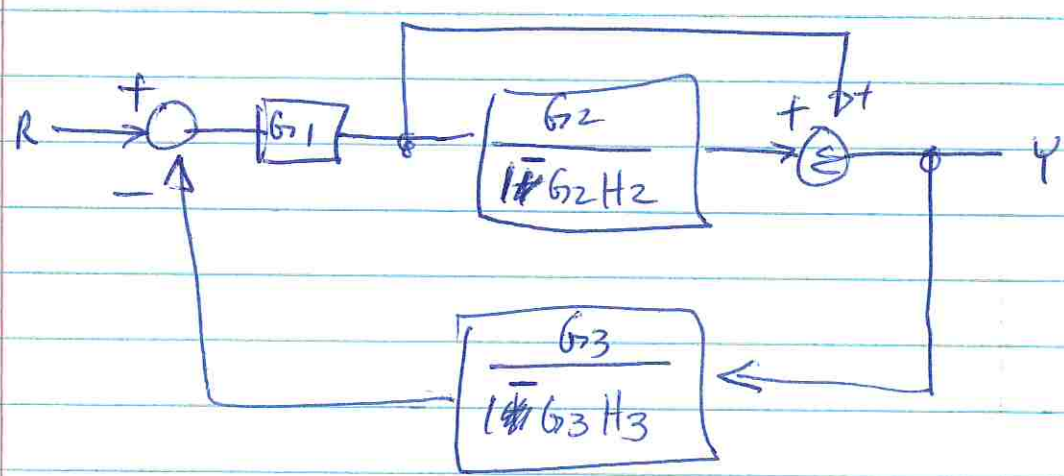 + +
R G1 G2 + Σ Y
− 1 − G2H2
G3
1 − G3H3